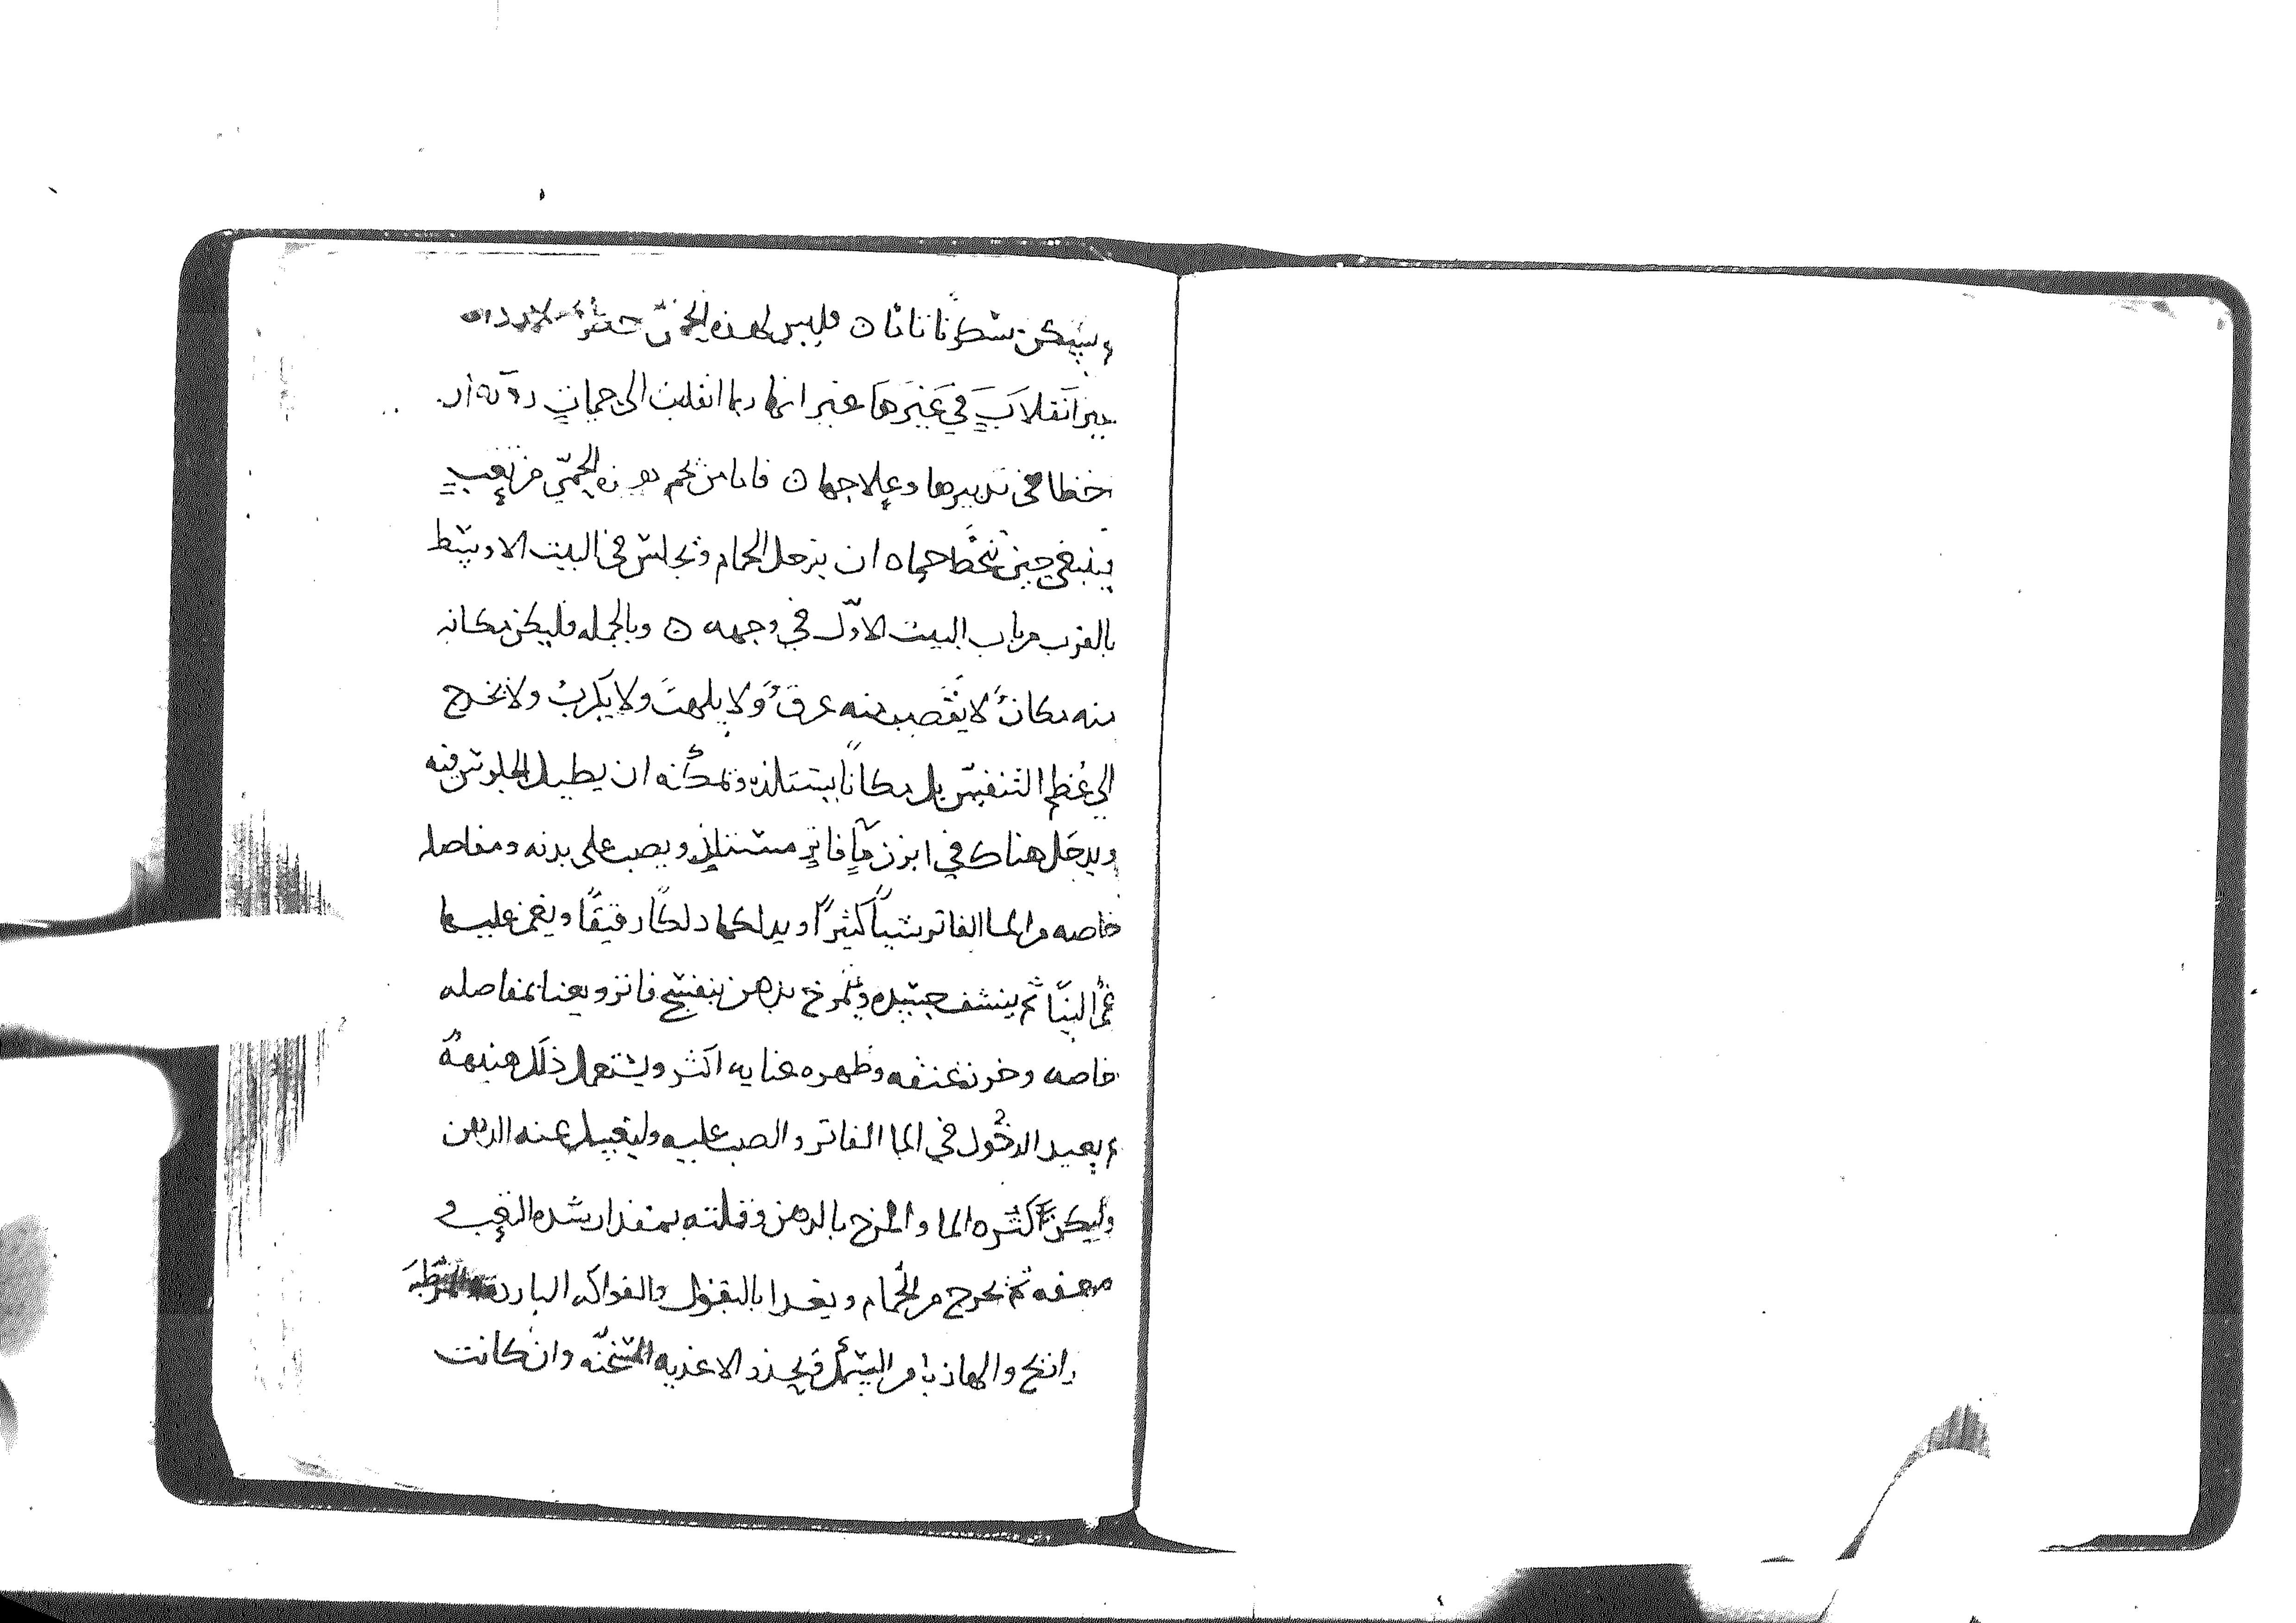 ويسكن سكونا تاما ن فليس لهذه الحمى خطر ولا رداه
حين انقلابٍ في غيرها غير انها ربما انقلبت الى حميات رديه ان
خطا في تدبيرها وعلاجها ن فاما من يحم هذه الحمّى من تعبٍ
ينبغي حين تنحط حماه ان يدخل الحمام ويجلس في البيت الاوسط
بالقرب من باب البيت الاوّل في وجهه ن وبالجمله فليكن مكانه
منه مكانٌ لا يتصبب منه عرقٌ ولا يلهث ولا يكرب ولا يخرج
الى عُظم التنفس بل مكاناً يستلذه ويمكنه ان يطيل الجلوس فيه
ويدخل هناك في ابزن ماٍ فاترٍ مستلذٍ ويصب على بدنه ومفاصله
خاصه من الما الفاتر شياً كثيراً ويدلكها دلكاً رقيقاً ويغمز عليها
غمزا لينّا ثم ينشف جسده ويمرخ بدهن بنفسج فاتر ويعنا بمفاصله
خاصه وخرزة عنقه وظهره عنايه اكثر ويستعمل ذلك هنيهة
ثم يعيد الدخول في الما الفاتر والصب عليه وليغسل عنه الدهن
وليكن كثره الما والمرخ بالدهن وقلته بمقدار شده التعب و
ضعفه ثم يخرج من الحمام ويغدا بالبقول والفواكه البارده الرطبه
والهازبا من السمك ويحذر الاغذيه المسخّنه وان كانت